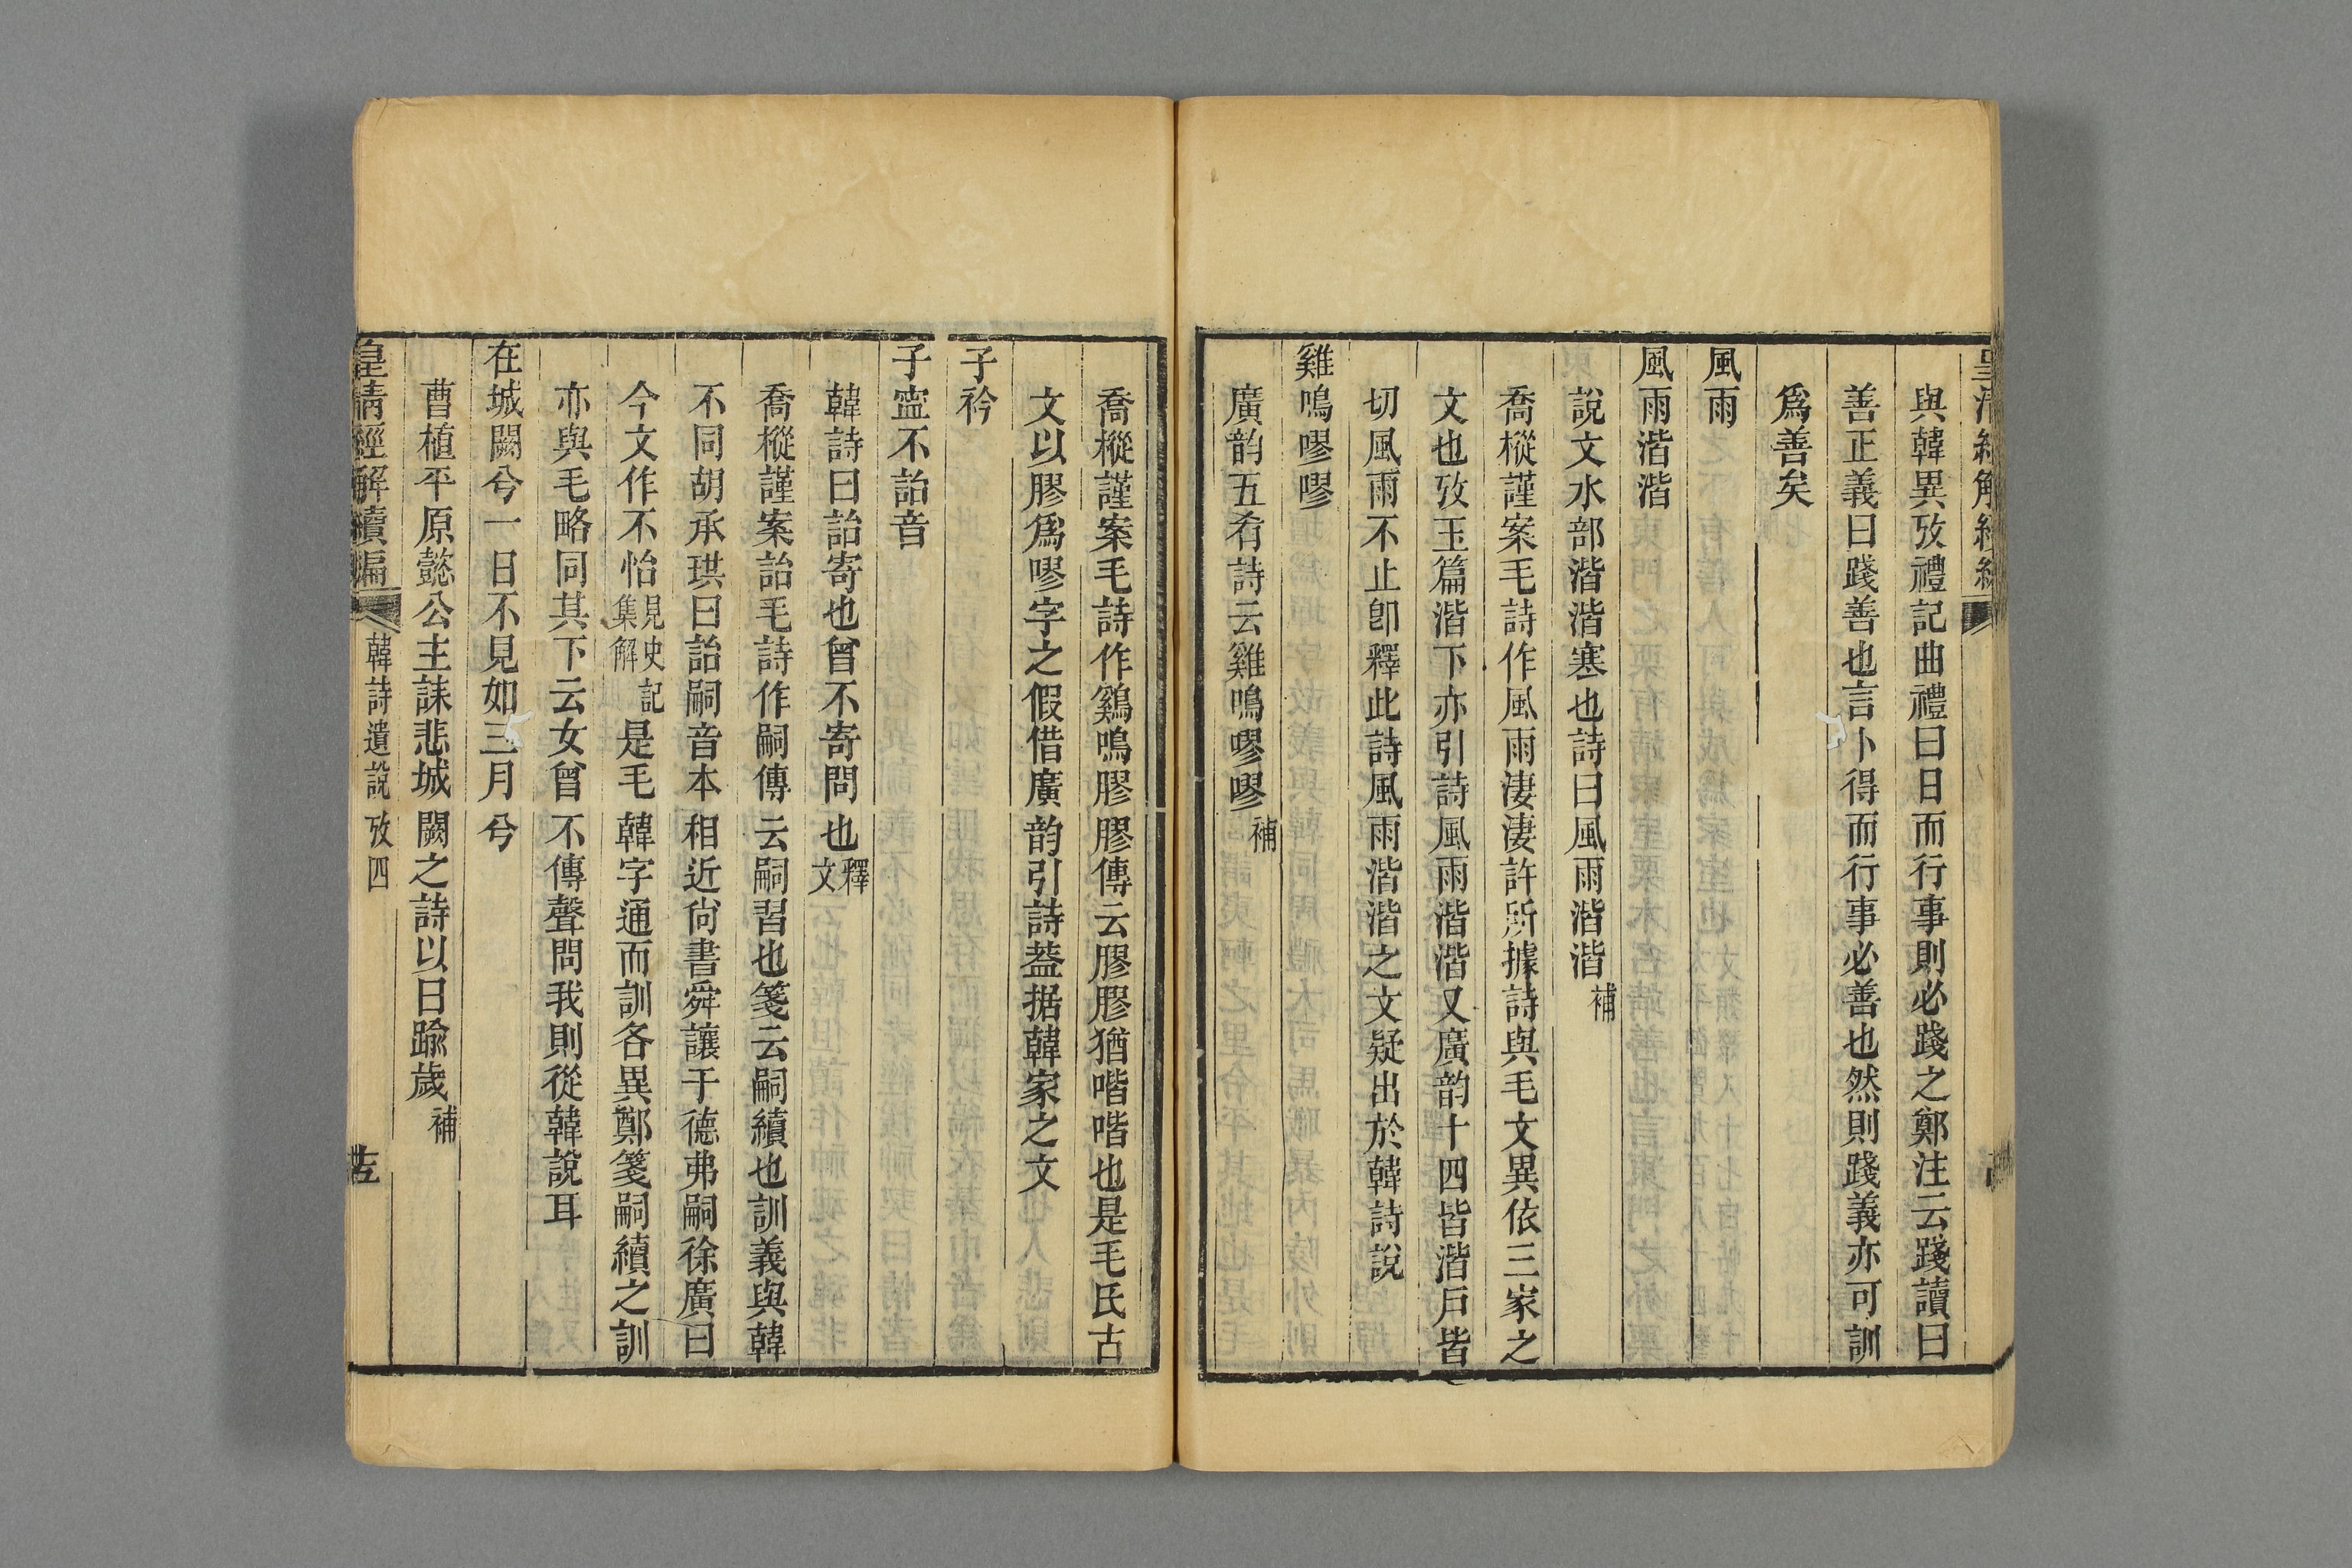 皇清經解經
與韓異攷禮記曲禮曰日而行事則必踐之鄭注云踐讀曰
善正義曰踐善也言卜得而行事必善也然則踐義亦可訓
爲善矣
風雨
風雨湝湝
說文水部湝湝寒也詩曰風雨湝湝補
喬樅謹案毛詩作風雨淒淒許所據詩與毛文異依三家之
文也攷玉篇湝下亦引詩風雨湝湝又廣韵十四皆湝戶皆
切風雨不止卽釋此詩風雨湝湝之文疑出於韓詩說
雞鳴嘐嘐
廣韵五肴詩云雞鳴嘐嘐補
喬樅謹案毛詩作鷄鳴膠膠傳云膠膠猶喈喈也是毛氏古
文以膠爲嘐字之假借廣韵引詩葢据韓家之文
子衿
子寍不詒音
韓詩曰詒寄也曾不寄問也釋文
喬樅謹案詒毛詩作嗣傳云嗣習也箋云嗣續也訓義與韓
不同胡承珙曰詒嗣音本相近尙書舜讓于德弗嗣徐廣曰
今文作不怡見史記集解是毛韓字通而訓各異鄭箋嗣續之訓
亦與毛略同其下云女曾不傳聲問我則從韓說耳
在城闕兮一日不見如三月兮
曹植平原懿公主誄悲城闕之詩以日踰歲補
皇清經解續編 韓詩遺說攷四